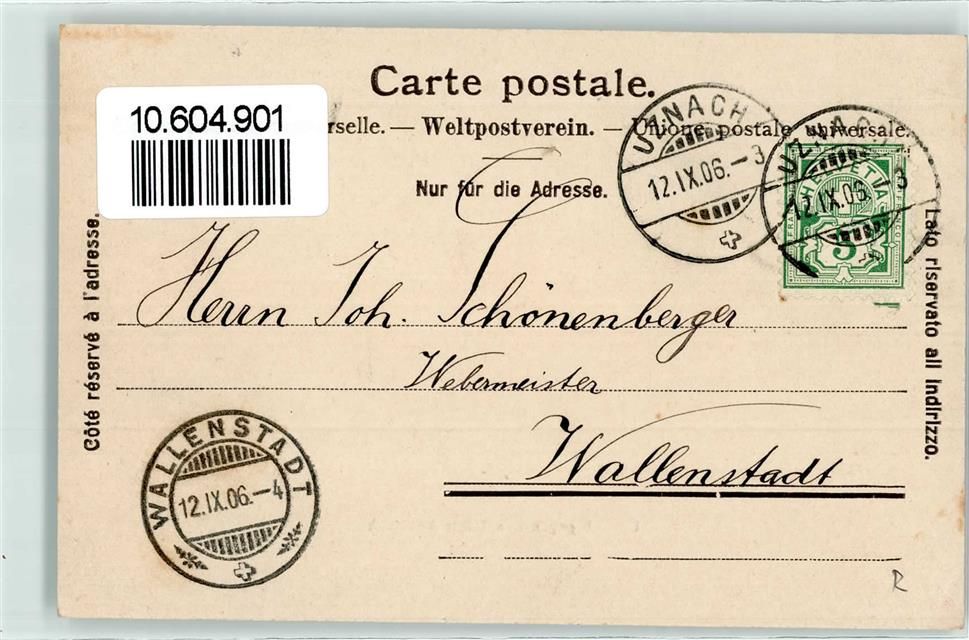 Carte postale.
10.604.901
rselle. — Weltpostverein. — Unione postale universale.
Nur für die Adresse.
UZNACH
12.IX.06.–3
UZNACH
12.IX.06. 3
HELVETIA
FRANCO
5
Côté réservé à l'adresse.
Lato riservato all indirizzo.
Herrn Joh. Schönenberger
Webermeister
Wallenstadt
WALLENSTADT
12.IX.06.–4
R